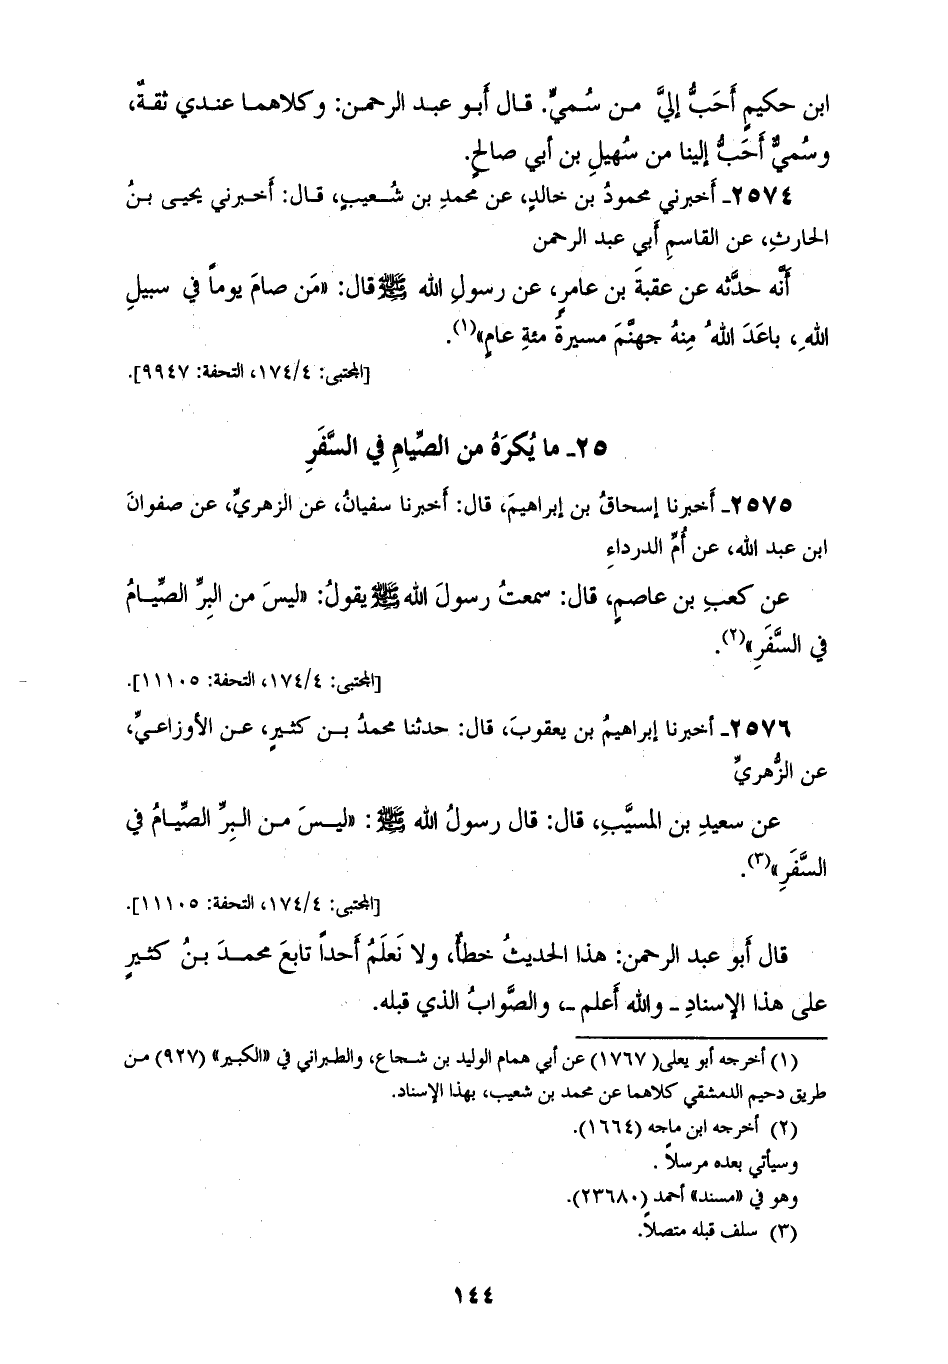 ابن حكيمٍ أَحَبُّ إليَّ من سُميٍّ. قال أَبو عبد الرحمن: وكلاهما عندي ثقةٌ،
وسُميٌّ أَحَبُّ إلينا من سُهيلِ بن أبي صالحٍ.
٢٥٧٤ـ أَخبرني محمودُ بن خالدٍ، عن محمدِ بن شُعيبٍ، قال: أَخبرني يحيى بنُ
الحارثِ، عن القاسمِ أَبي عبد الرحمن
أَنَّه حدَّثه عن عقبةَ بن عامرٍ، عن رسولِ الله ﷺ قال: «مَن صامَ يوماً في سبيلِ
اللهِ، باعَدَ اللهُ مِنهُ جهنَّمَ مسيرةَ مئةِ عامٍ»(١).
[المجتبى: ١٧٤/٤، التحفة: ٩٩٤٧].
٢٥ـ ما يُكرَهُ من الصِّيامِ في السَّفَرِ
٢٥٧٥ـ أَخبرنا إسحاقُ بن إبراهيمَ، قال: أَخبرنا سفيانُ، عن الزهريِّ، عن صفوانَ
ابن عبد الله، عن أُمِّ الدرداءِ
عن كعبِ بن عاصمٍ، قال: سمعتُ رسولَ الله ﷺ يقولُ: «ليسَ من البِرِّ الصِّيامُ
في السَّفَرِ»(٢).
[المجتبى: ١٧٤/٤، التحفة: ١١١٠٥].
٢٥٧٦ـ أخبرنا إبراهيمُ بن يعقوبَ، قال: حدثنا محمدُ بن كثيرٍ، عن الأوزاعيِّ،
عن الزُّهريِّ
عن سعيدِ بن المسيَّبِ، قال: قال رسولُ الله ﷺ: «ليسَ من البِرِّ الصِّيامُ في
السَّفَرِ»(٣).
[المجتبى: ١٧٤/٤، التحفة: ١١١٠٥].
قال أَبو عبد الرحمن: هذا الحديثُ خطأٌ، ولا نَعلَمُ أَحداً تابعَ محمدَ بنُ كثيرٍ
على هذا الإسنادِ ـ والله أَعلم ـ، والصَّوابُ الذي قبله.
(١) أخرجه أبو يعلى( ١٧٦٧) عن أبي همام الوليد بن شجاع، والطبراني في «الكبير» (٩٢٧) من
طريق دحيم الدمشقي كلاهما عن محمد بن شعيب، بهذا الإسناد.
(٢) أخرجه ابن ماجه (١٦٦٤).
وسيأتي بعده مرسلاً .
وهو في «مسند» أحمد (٢٣٦٨٠).
(٣) سلف قبله متصلاً.
١٤٤